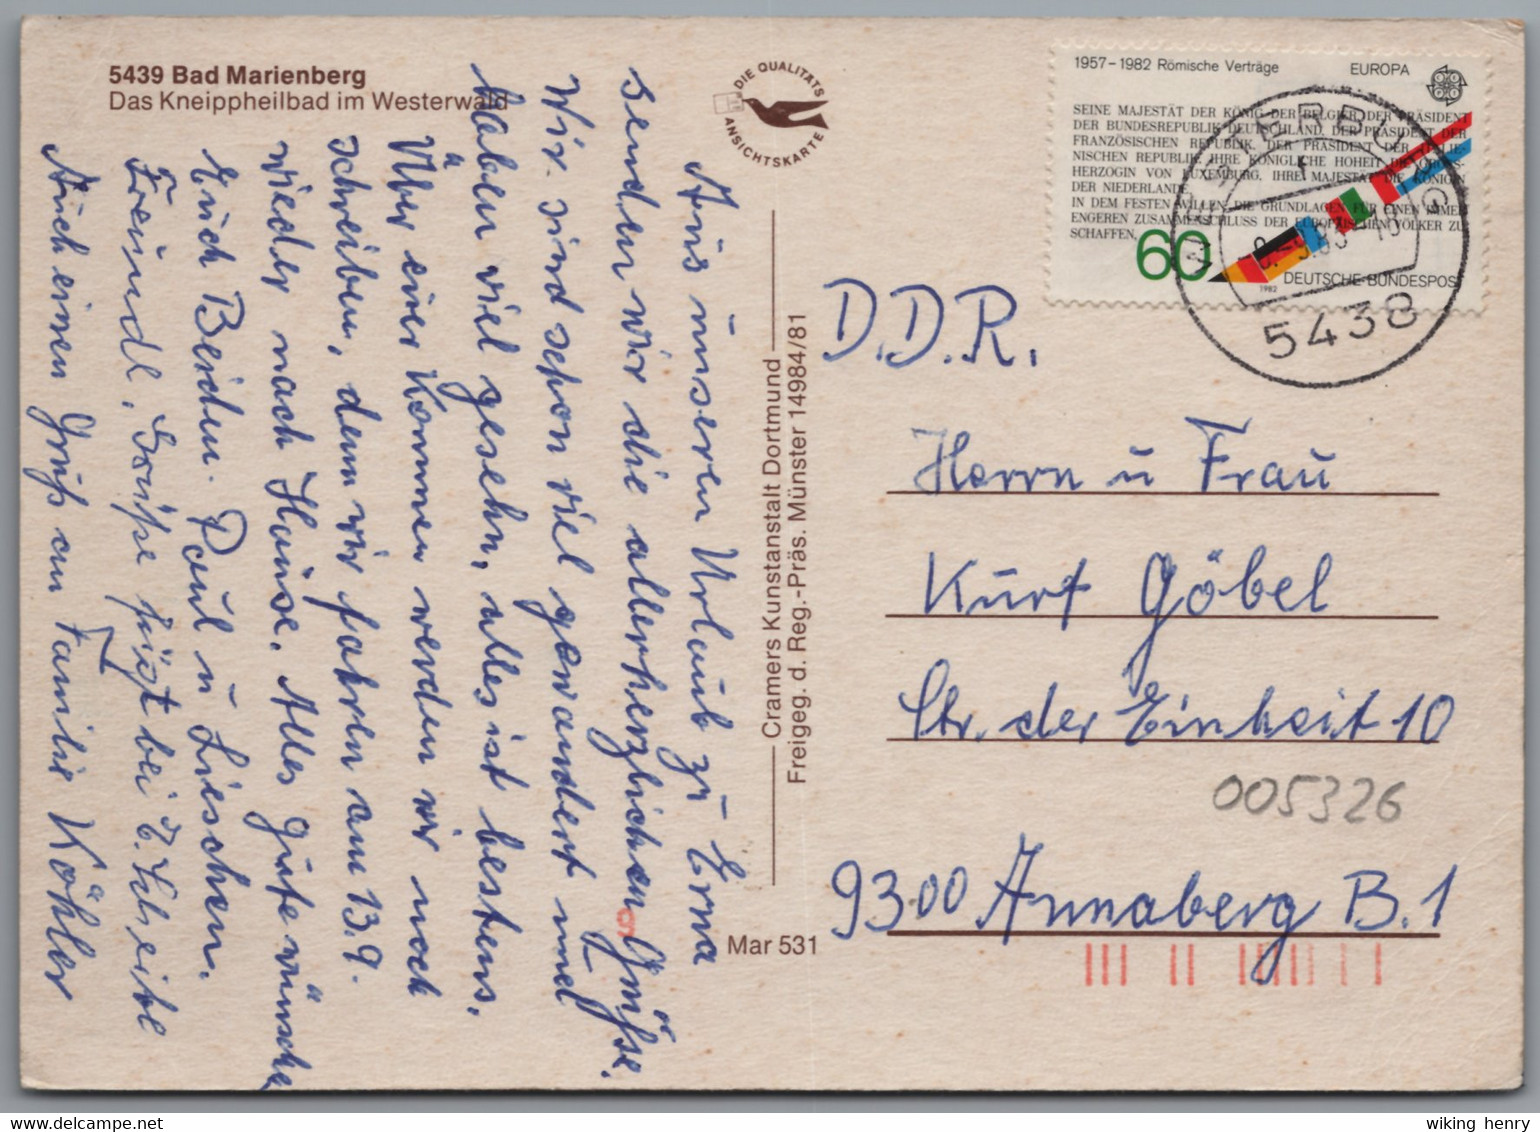 5439 Bad Marienberg
Das Kneippheilbad im Westerwald
DIE QUALITÄTS
ANSICHTSKARTE
Aus unseren Urlaub zu Erna
senden wir die allerherzlichen Grüsse.
Wir sind schon viel gewandert und
haben viel gesehn, alles ist bestens.
Über einer Kommen werden wir noch
schreiben, denn wir fahren am 13.9.
wieder nach Hause. Alles gute wünschen
Euch Beiden. Paul u Lieschen.
Freundl. Grüße fügt bei
Auch einen Gruß an Familie Köhler
Cramers Kunstanstalt Dortmund
Freigeg. d. Reg.-Präs. Münster 14984/81
Mar 531
1957–1982 Römische Verträge
EUROPA
SEINE MAJESTÄT DER KÖNIG DER BELGIER, DER PRÄSIDENT
DER BUNDESREPUBLIK DEUTSCHLAND, DER PRÄSIDENT DER
FRANZÖSISCHEN REPUBLIK, DER PRÄSIDENT DER ITALIE-
NISCHEN REPUBLIK, IHRE KÖNIGLICHE HOHEIT DIE GROSS-
HERZOGIN VON LUXEMBURG, IHRE MAJESTÄT DIE KÖNIGIN
DER NIEDERLANDE
IN DEM FESTEN WILLEN, DIE GRUNDLAGEN FÜR EINEN IMMER
ENGEREN ZUSAMMENSCHLUSS DER EUROPÄISCHEN VÖLKER ZU
SCHAFFEN,
60
1982
DEUTSCHE BUNDESPOST
WESTERBURG
5438
D.D.R.
Herrn u Frau
Kurt Göbel
Str. der Einheit 10
005326
9300 Annaberg B. 1
wiking henry